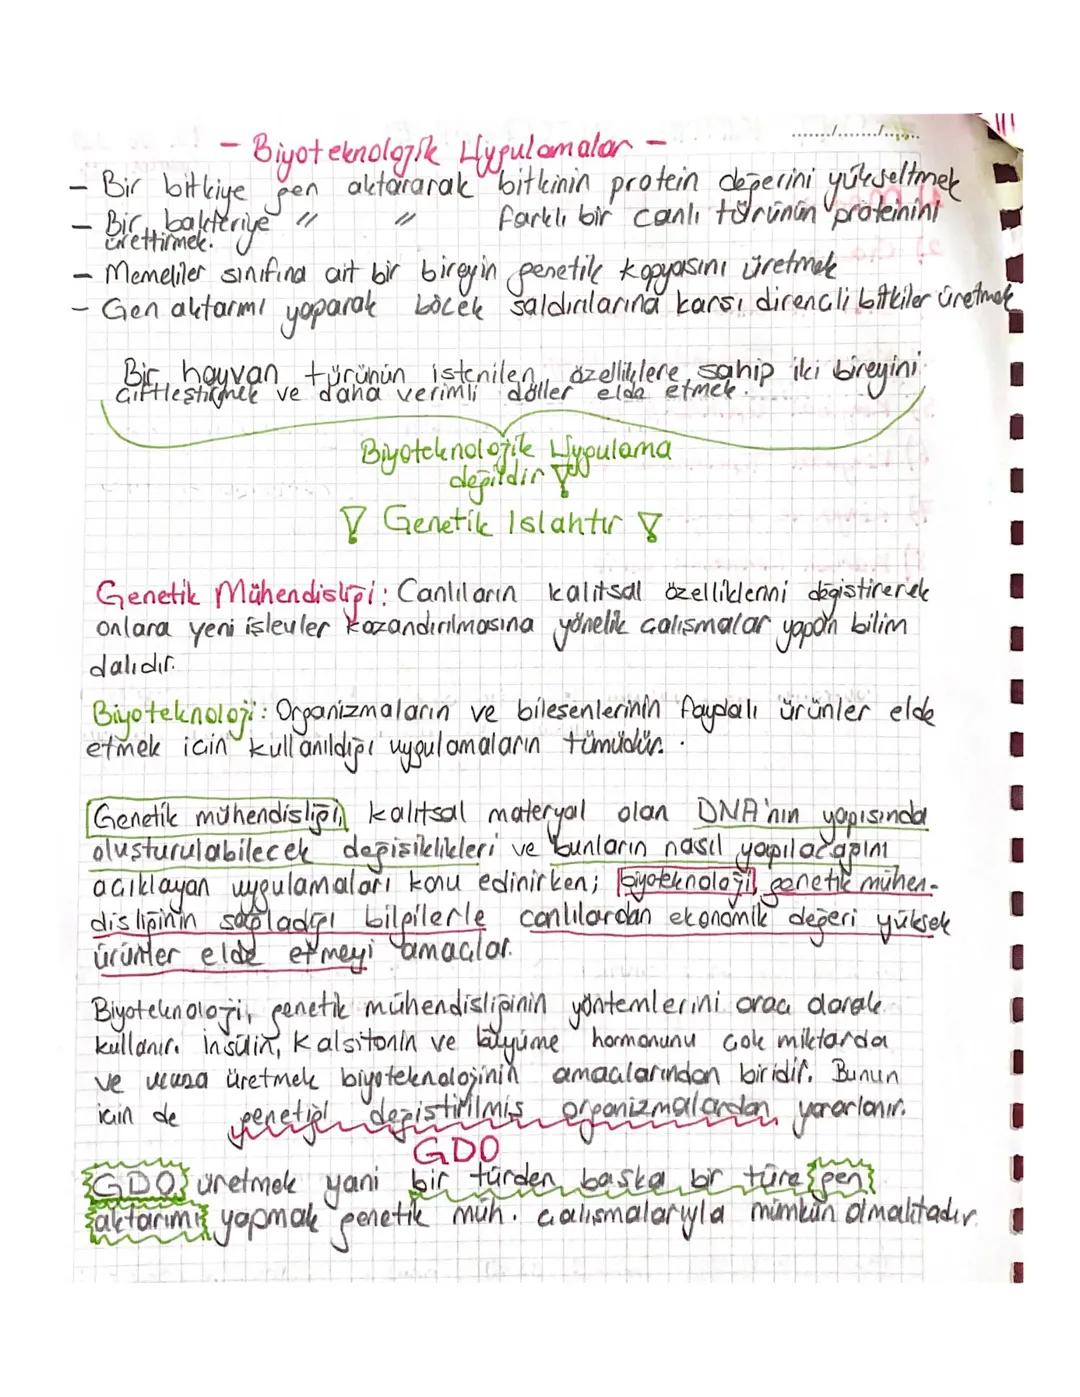 - Biyoteknolojik Uygulamalar -
......./......./.......
- Bir bitkiye gen aktararak bitkinin protein değerini yükseltmek
- Bir bakteriye " " farklı bir canlı türünün proteinini
ürettirmek.
- Memeliler sınıfına ait bir bireyin genetik kopyasını üretmek
- Gen aktarımı yaparak böcek saldırılarına karşı dirençli bitkiler üretmek
Bir hayvan türünün istenilen özelliklere sahip iki bireyini
çiftleştirmek ve daha verimli döller elde etmek.
Biyoteknolojik Uygulama
değildir !
! Genetik Islahtır !
Genetik Mühendisliği: Canlıların kalıtsal özelliklerini değiştirerek
onlara yeni işlevler kazandırılmasına yönelik çalışmalar yapan bilim
dalıdır.
Biyoteknoloji: Organizmaların ve bileşenlerinin faydalı ürünler elde
etmek için kullanıldığı uygulamaların tümüdür.
Genetik mühendisliği, kalıtsal materyal olan DNA'nın yapısında
oluşturulabilecek değişiklikleri ve bunların nasıl yapılacağını
açıklayan uygulamaları konu edinirken; biyoteknoloji, genetik mühen-
disliğinin sağladığı bilgilerle canlılardan ekonomik değeri yüksek
ürünler elde etmeyi amaçlar.
Biyoteknoloji, genetik mühendisliğinin yöntemlerini araç olarak
kullanır. İnsülin, Kalsitonin ve büyüme hormonunu çok miktarda
ve ucuza üretmek biyoteknolojinin amaçlarından biridir. Bunun
için de genetiği değiştirilmiş organizmalardan yararlanır.
GDO
GDO üretmek yani bir türden başka bir türe gen
aktarımı yapmak genetik müh. çalışmalarıyla mümkün olmaktadır.